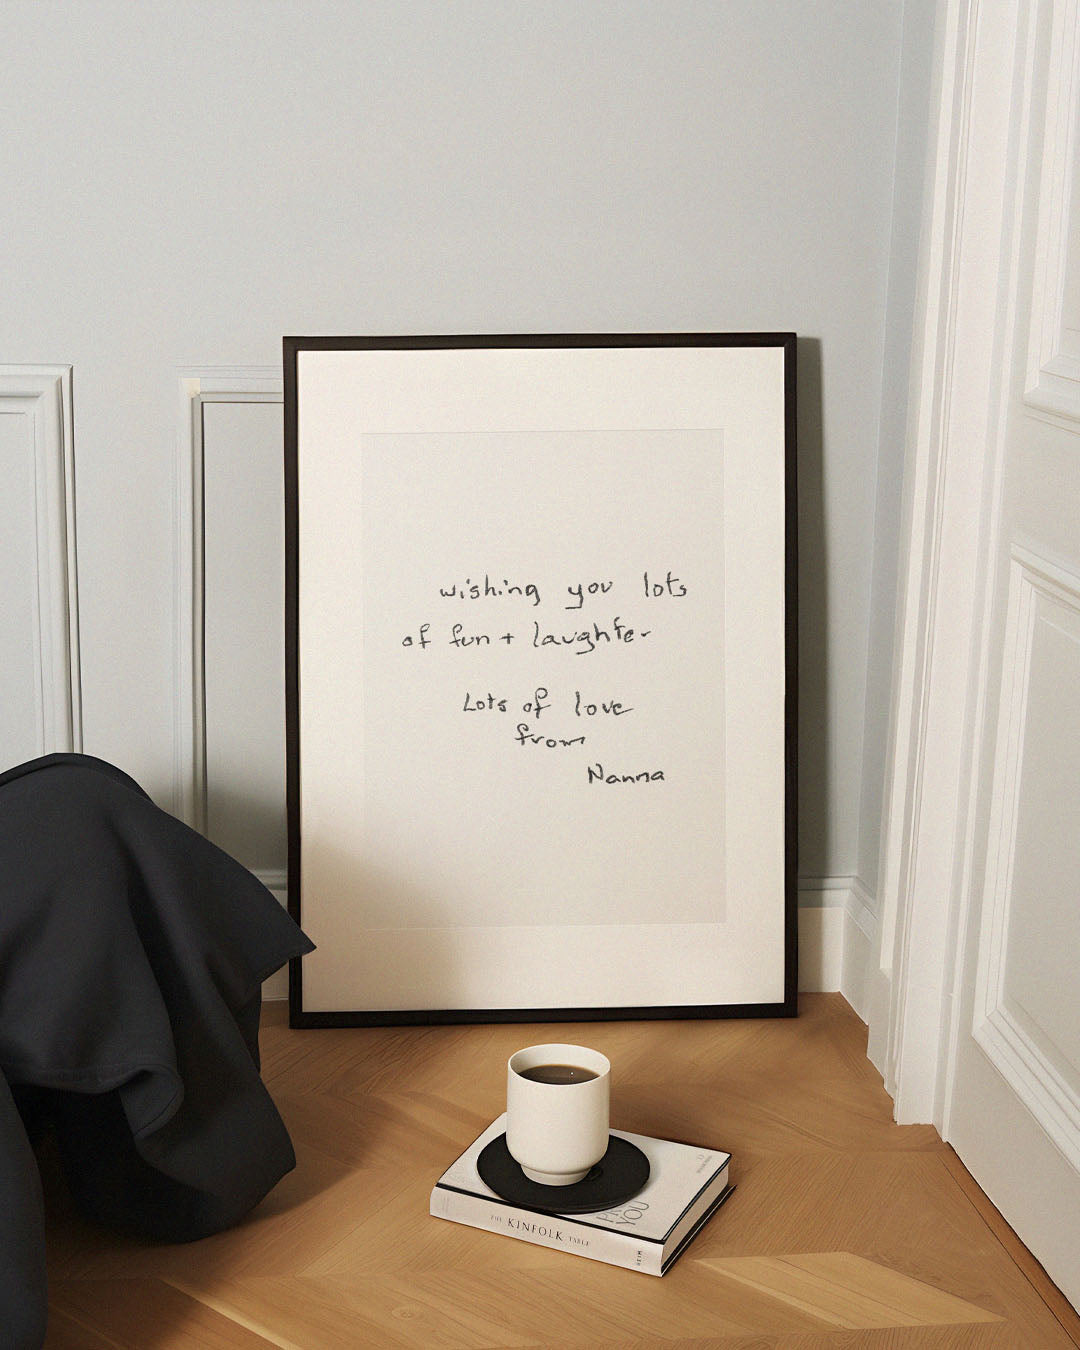 wishing you lots
of fun + laughter
Lots of love
from
Nanna
THE KINFOLK TABLE
YOU